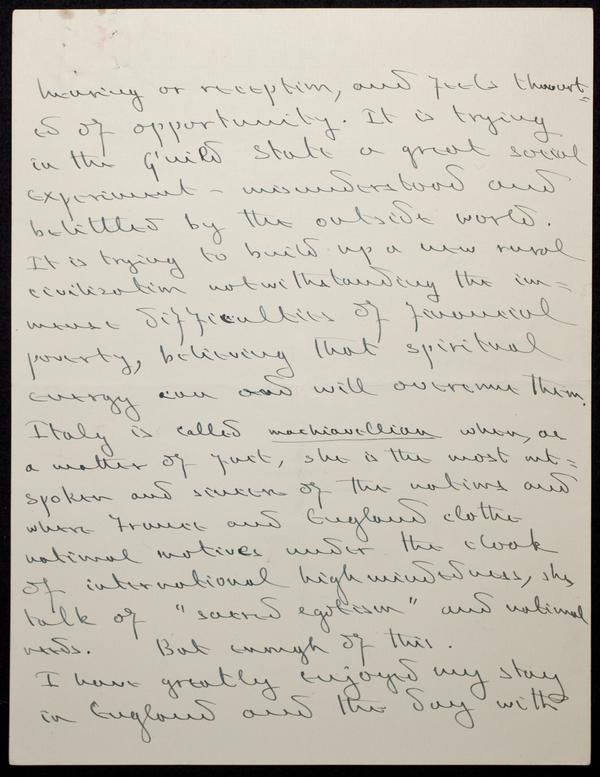 hearing or reception, and feels thwart=
ed of opportunity. It is trying
in the Guild state a great social
experiment - misunderstood and
belittled by the outside world.
It is trying to build up a new rural
civilization notwithstanding the im=
mense difficulties of financial
poverty, believing that spiritual
energy can and will overcome them.
Italy is called machiavellian when, as
a matter of fact, she is the most out=
spoken and sincere of the nations and
where France and England clothe
national motives under the cloak
of international highmindedness, she
talk of "sacred egotism" and national
needs. But enough of this.
I have greatly enjoyed my stay
in England and the day with